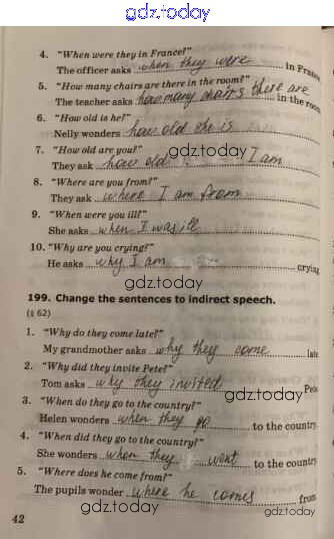 gdz.today
4. "When were they in France?"
The officer asks when they were in France
5. "How many chairs are there in the room?"
The teacher asks how many chairs there are in the room
6. "How old is he?"
Nelly wonders how old she is
7. "How old are you?"
gdz.today
They ask how old I am
8. "Where are you from?"
They ask where I am from
9. "When were you ill?"
She asks when I was ill
10. "Why are you crying?"
He asks why I am crying
gdz.today
199. Change the sentences to indirect speech.
(§ 62)
1. "Why do they come late?"
My grandmother asks why they come late
2. "Why did they invite Pete?"
Tom asks why they invited Pete
gdz.today
3. "When do they go to the country?"
Helen wonders when they go to the country
4. "When did they go to the country?"
She wonders when they went to the country
5. "Where does he come from?"
The pupils wonder where he comes from
42
gdz.today
gdz.today